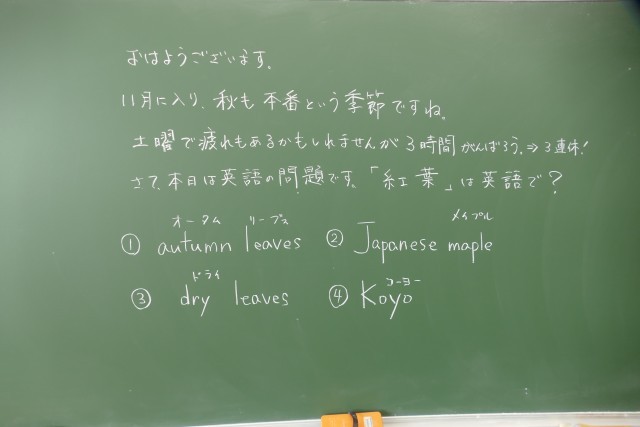 おはようございます。
11月に入り、秋も本番という季節ですね。
土曜で疲れもあるかもしれませんが3時間がんばろう。⇒3連休!
さて、本日は英語の問題です。「紅葉」は英語で?
オータム リーブス メイプル
① autumn leaves ② Japanese maple
ドライ コーヨー
③ dry leaves ④ Koyo